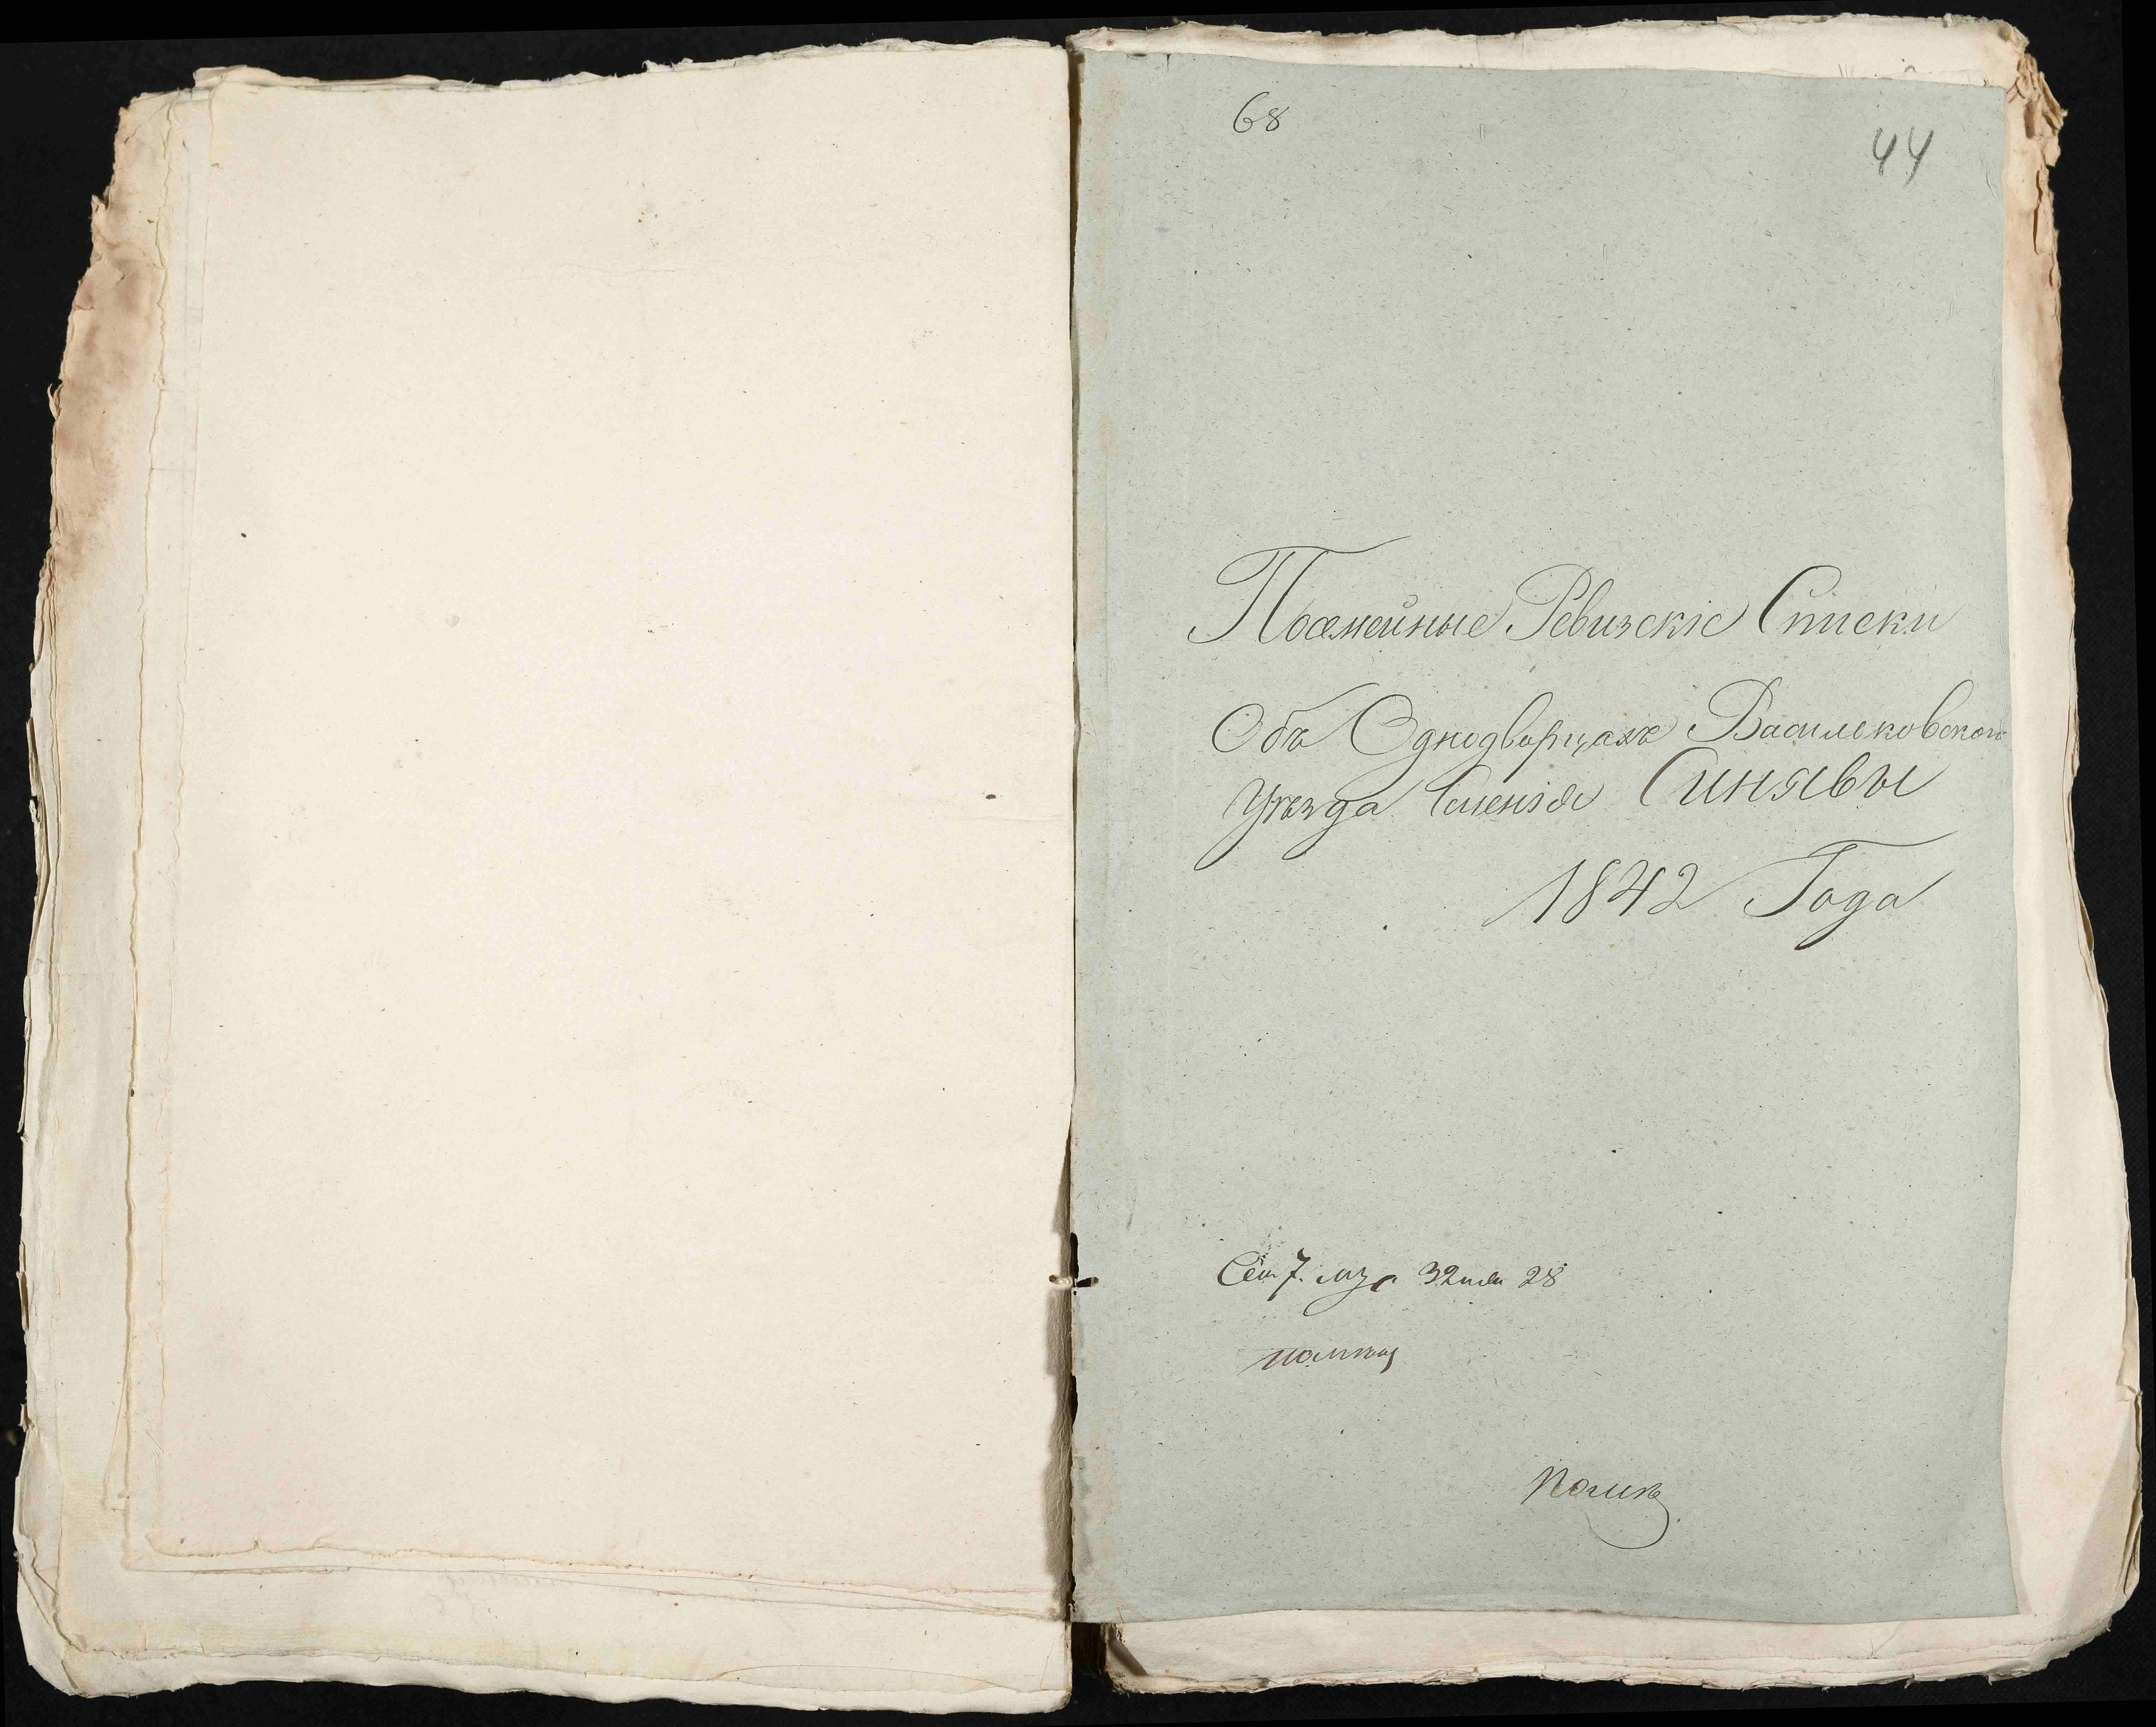 68
44
Посемейные Ревизскіе Списки
Объ Однодворцахъ Васильковскаго
Уѣзда Селенія Синявы
1842 Года
Сем 7. муз 32 жен 28